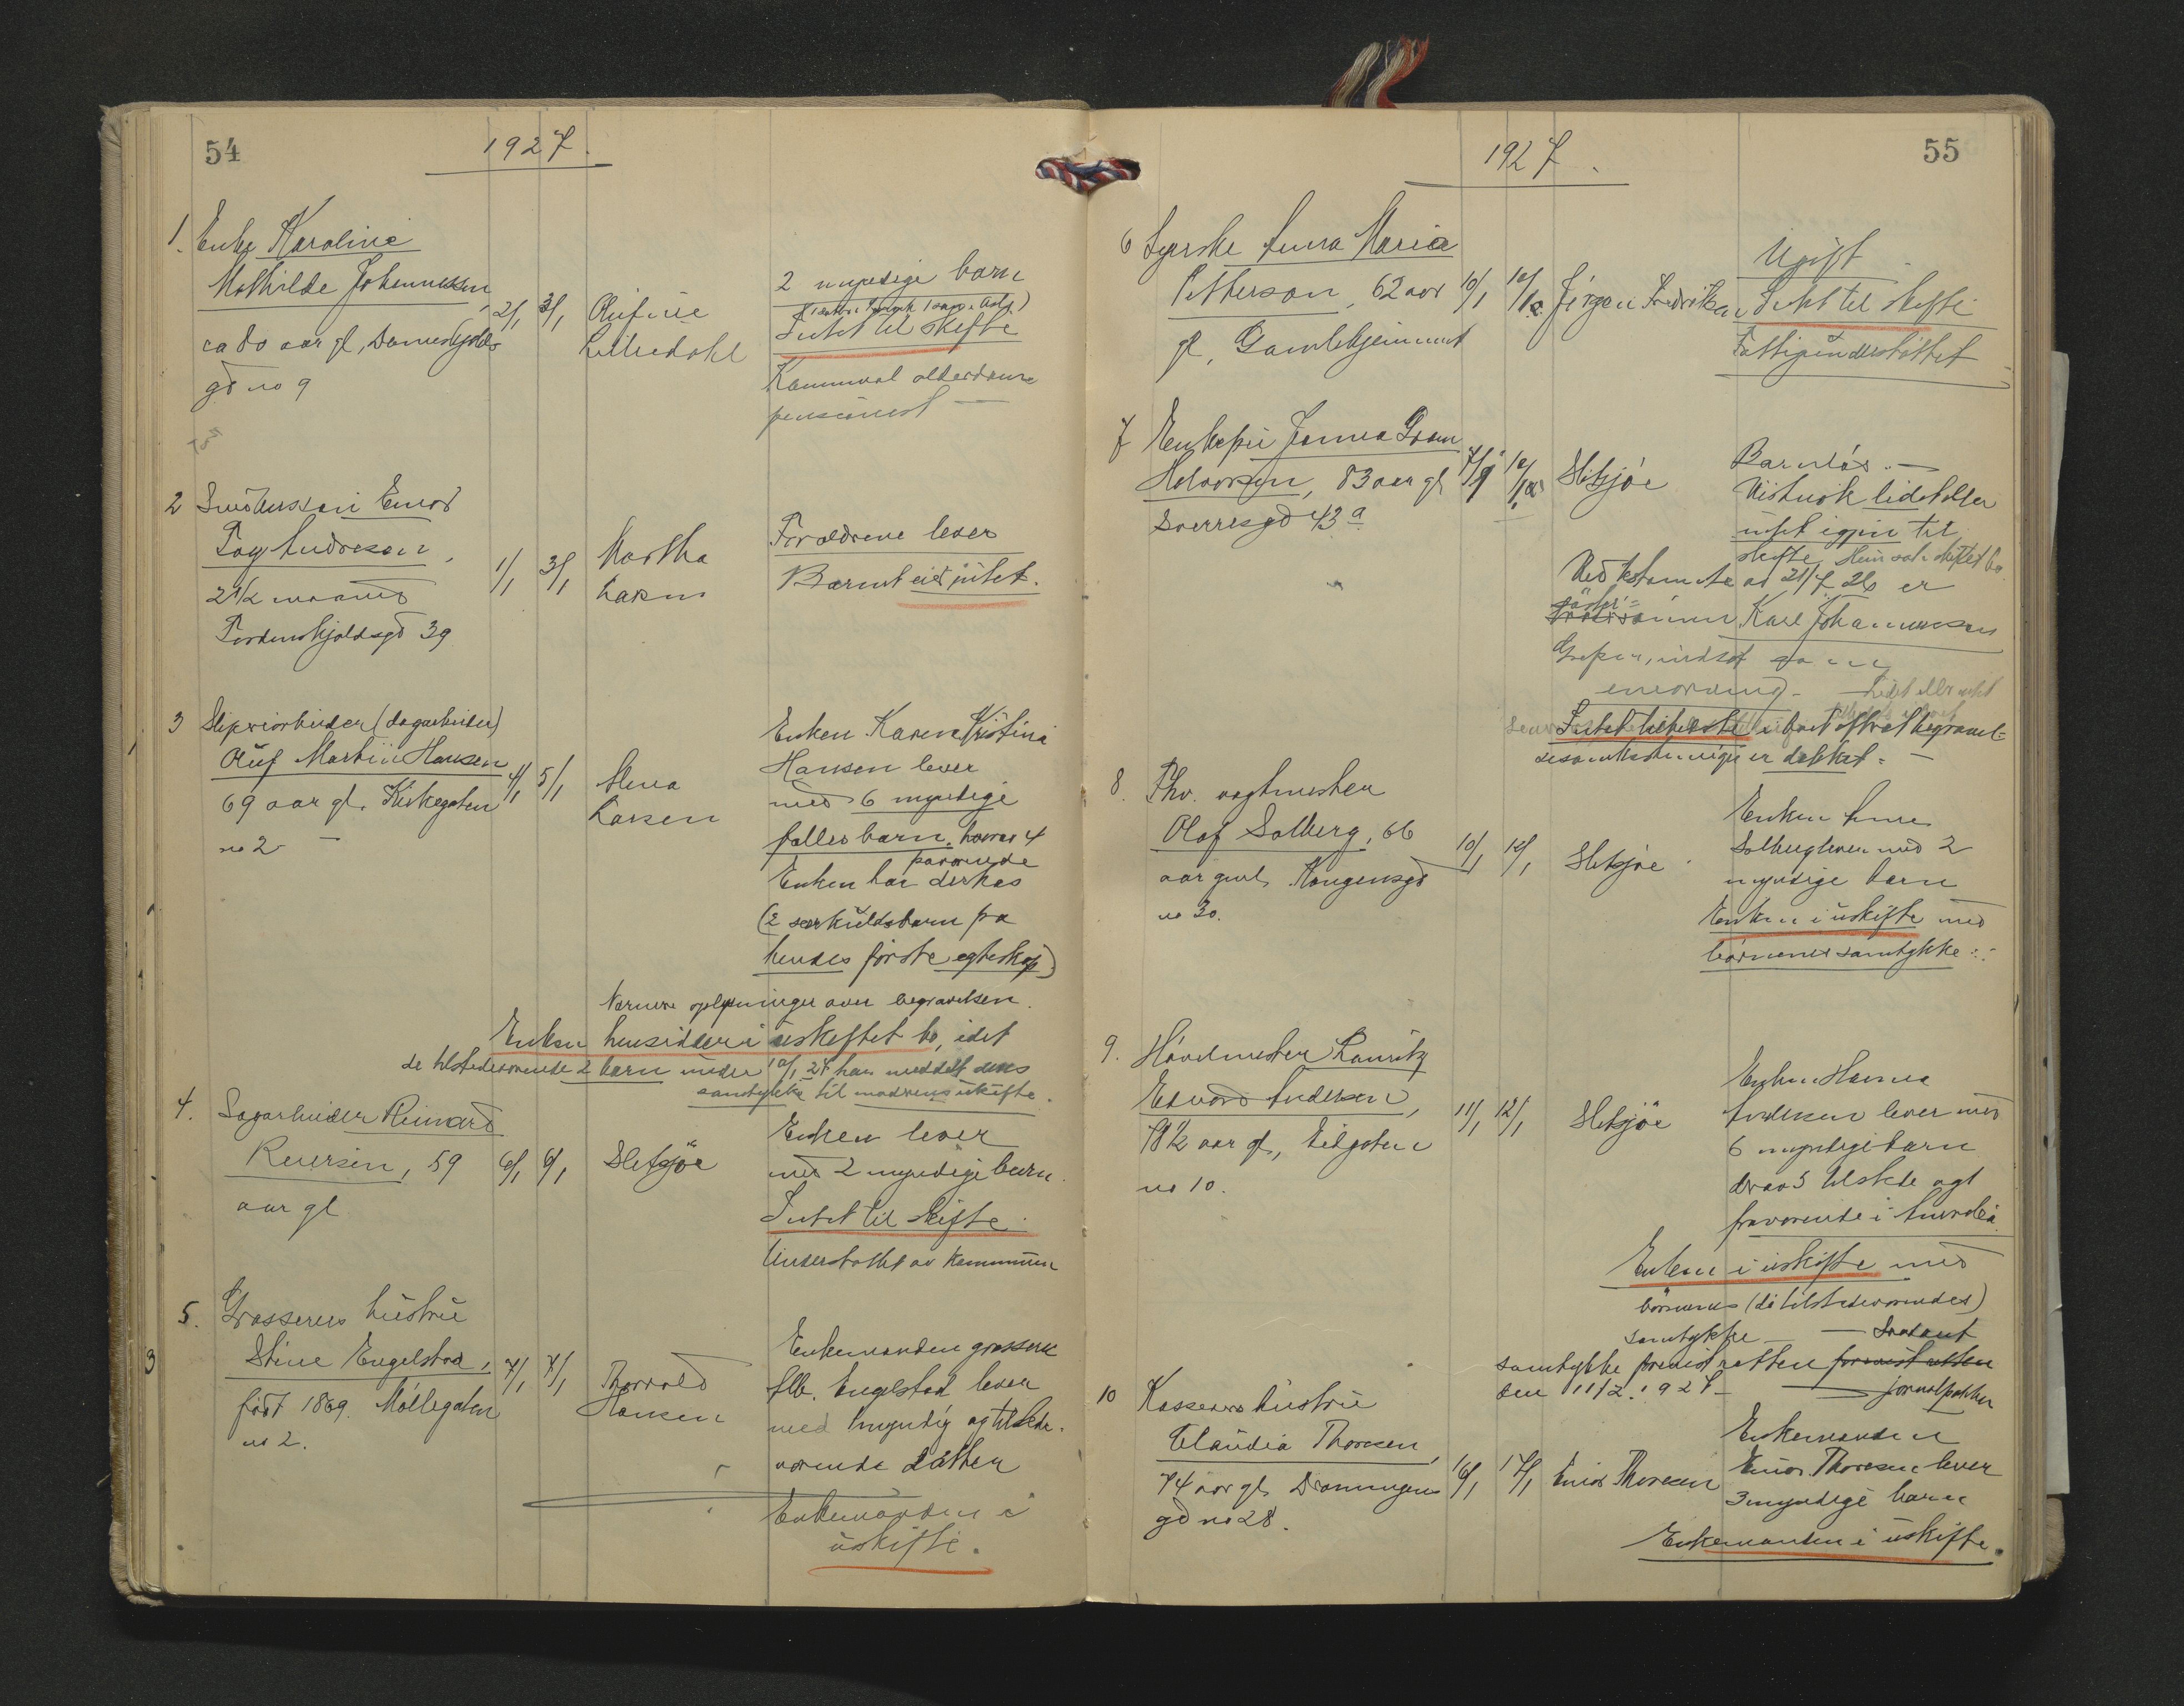 54
1927.
1. Enke Karoline
Mathilde Johannessen,
ca 80 aar gl, Tordenskjolds
gd no 9
2/1 3/1
Rufine
Lilledahl
2 myndige barn
Intet til skifte
Kommunal alderdoms
pensionist —
2
Tag Andresen,
2 1/2 maaned
Tordenskjoldsgd 39
1/1 3/1
Martha
Larsen
Forældrene lever
Barnet eied intet.
3 Sliperiarbeider (dagarbeider)
Oluf Martin Hansen
69 aar gl. Kirkegaten
no 2 —
4/1 5/1
Alma
Larsen
Enken Karen Kristine
Hansen lever
med 6 myndige
fælles barn, hvorav 4
fraværende
Enken har derhos
(2 særkuldsbarn fra
hendes første egteskap)
Nærmere oplysninger over begravelsen.
Enken hensidder i uskiftet bo, idet
de tilstedeværende 2 barn under 10/1 27 har meddelt deres
samtykke til modrens uskifte.
4. Sagarbeider Reinard
Reiersen, 59
aar gl
6/1 6/1
Sletsjøe
Enken lever
med 2 myndige barn.
Intet til skifte.
Understøttet av kommunen
5. Grosserers hustru
Stine Engelstad,
født 1869. Møllegaten
no 2.
7/1 7/1
Thorvald
Hansen
Enkemanden grosserer
Engelstad lever
med 1 myndig og tilstede-
værende datter
Enkemanden i
uskifte.
1927.
55
6 Syerske Anna Maria
Petterson, 62 aar
gl, Gamlehjemmet
10/1 10/1
Jørgen Fredriksen
Ugift
Intet til skifte
Fattigunderstøttet
7 Enkefru Janna Gram
Halvorsen, 83 aar gl
Sverresgd 43 a
7/1 10/1
Sletsjøe
Barnløs. —
Vistnok lidet eller
intet igjen til
skifte
Ved testamente av 21/7 26 er
søster=
sønnen Karl Johannessen
Greaker, indsat som
enearving. —
Intet til skifte
er dækket. —
8. Fhv. vagtmester
Olaf Solberg, 66
aar gml, Kongensgd
no 30.
10/1 12/1
Sletsjøe
Enken Anne
Solberg lever med 2
myndige barn
Enken i uskifte med
børnenes samtykke
9. Hovelmester Lauritz
Edvard Andersen,
78 1/2 aar gl, Eilgaten
no 10.
11/1 12/1
Sletsjøe
Enken Hanna
Andersen lever med
6 myndige barn
drav 5 tilstede og 1
fraværende i Amerika.
Enken i uskifte med
børnenes (de tilstedeværendes)
samtykke — Saadant
samtykke fremist retten
den 11/2 1927 — journalpakken
10 Kasserers hustru
Claudia Thoresen,
74 aar gl. Dronningens
gd no 28.
16/1 17/1
Einar Thoresen
Enkemanden
Einar Thoresen lever
3 myndige barn
Enkemanden i uskifte.
3